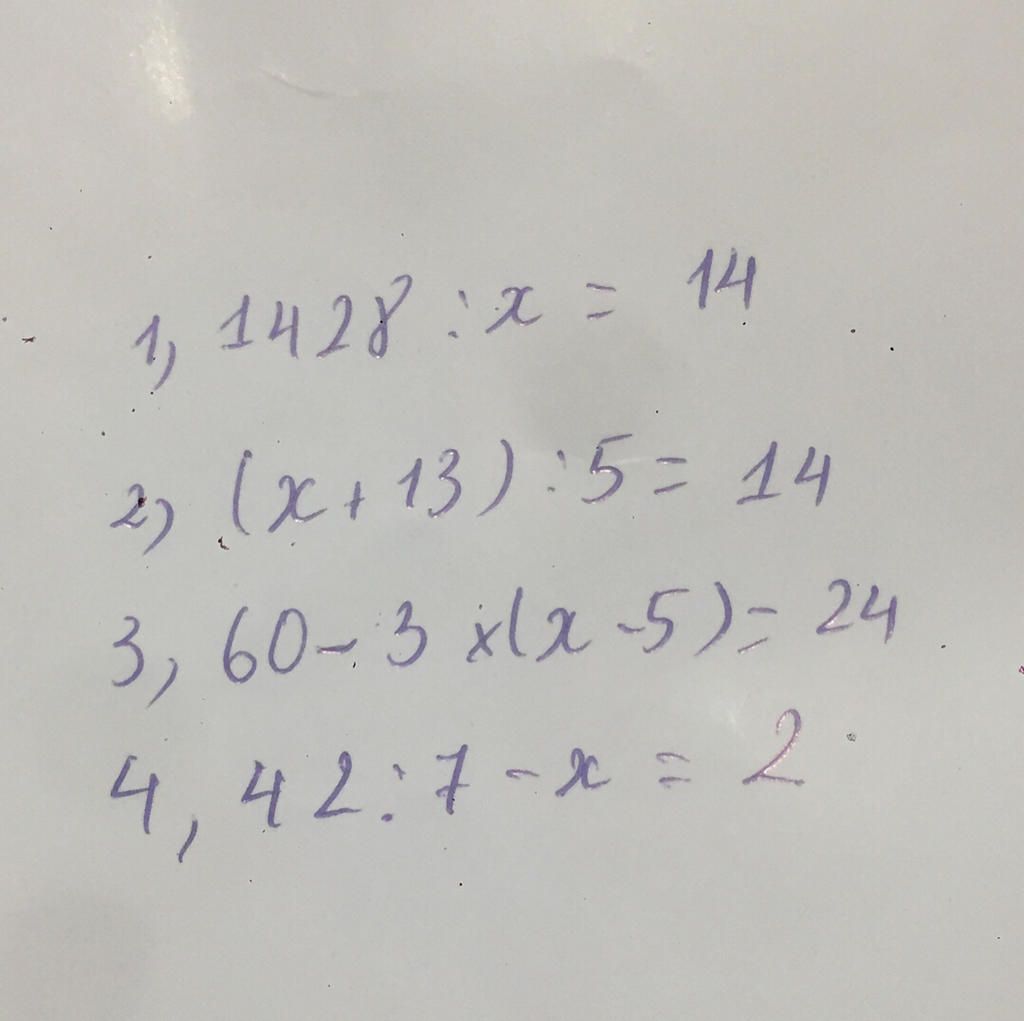 1, 1428 : x = 14
2, (x + 13) : 5 = 14
3, 60 - 3 x (x - 5) = 24
4, 42 : 7 - x = 2